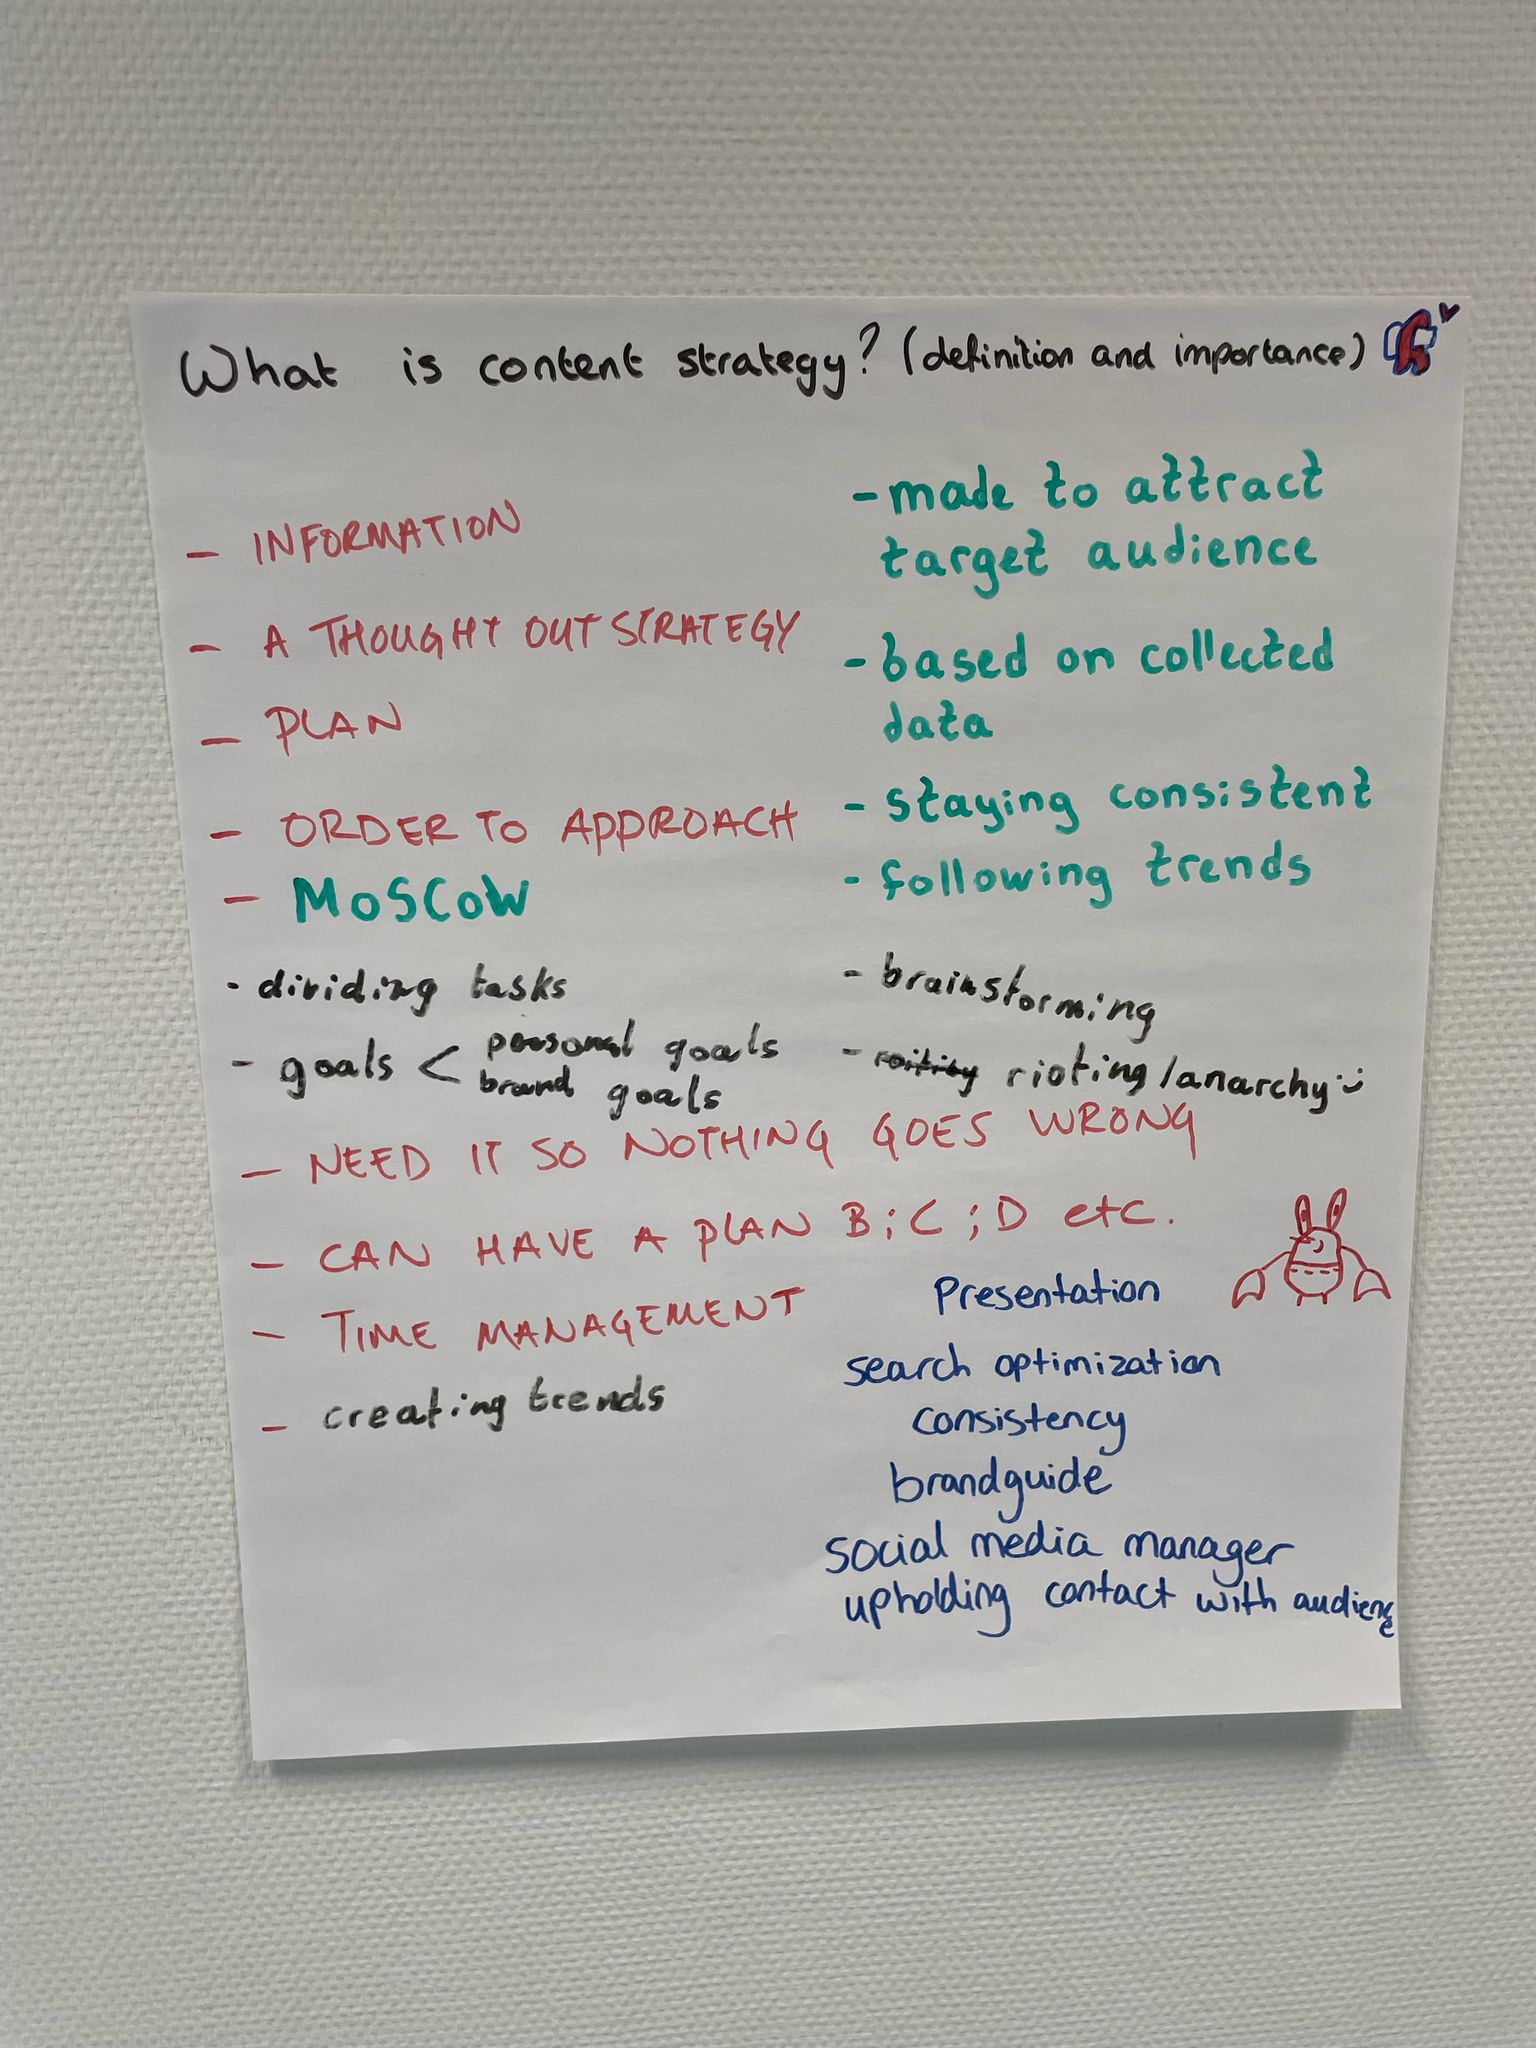 What is content strategy? (definition and importance)
- INFORMATION
- A THOUGHT OUT STRATEGY
- PLAN
- ORDER TO APPROACH
- MoSCoW
- dividing tasks
- goals < personal goals
brand goals
- made to attract
target audience
- based on collected
data
- staying consistent
- following trends
- brainstorming
- roiting rioting/anarchy :)
- NEED IT SO NOTHING GOES WRONG
- CAN HAVE A PLAN B; C; D etc.
- TIME MANAGEMENT
- creating trends
Presentation
search optimization
consistency
brandguide
social media manager
upholding contact with audience